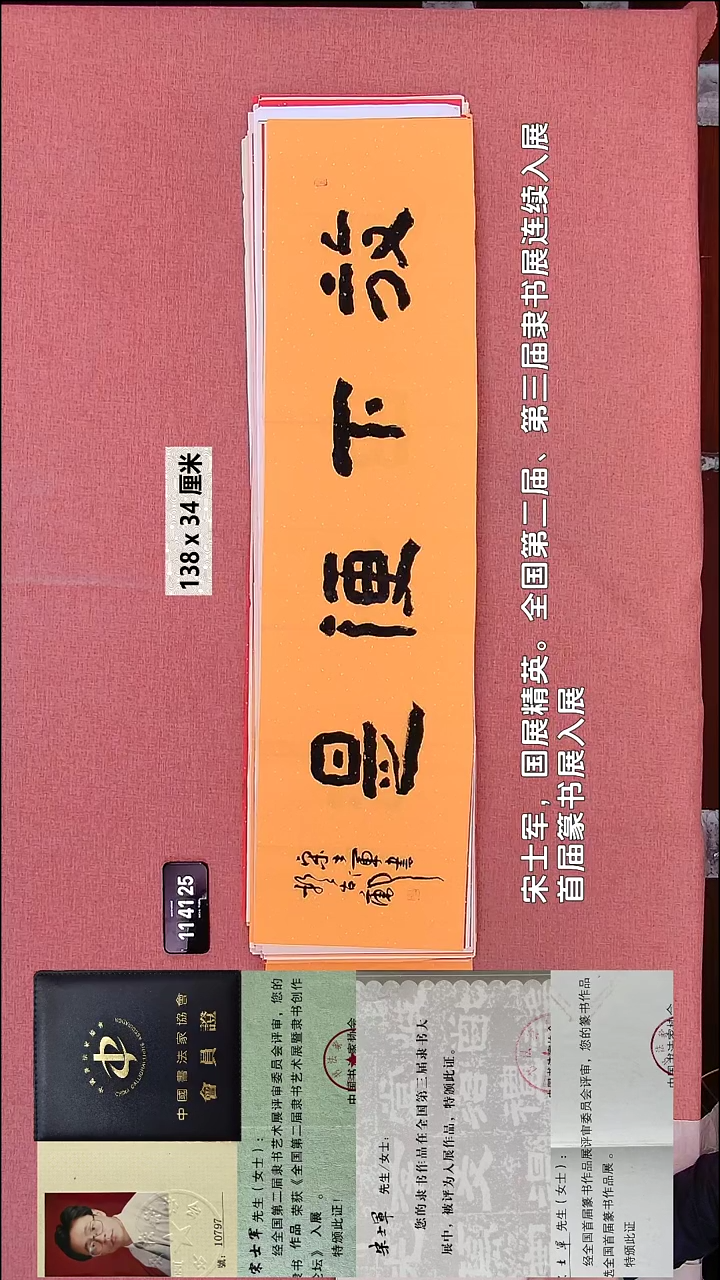 138 x 34 厘米
放下便是
宋士軍書
11 41 25
宋士军，国展精英。全国第二届、第三届隶书展连续入展
首届篆书展入展
中國書法家協會
會員證
號：10797
宋士军 先生（女士）：
经全国第二届隶书艺术展评审委员会评审，您的
书 作品 荣获《全国第二届隶书艺术展暨隶书创作
坛》 入展 。
特颁此证！
中国书法家协会
宋士軍 先生/女士：
您的隶书作品在全国第三届隶书大
展中，被评为入展作品，特颁此证。
士军 先生（女士）：
经全国首届篆书作品展评审委员会评审，您的篆书作品
选全国首届篆书作品展 。
特颁此证